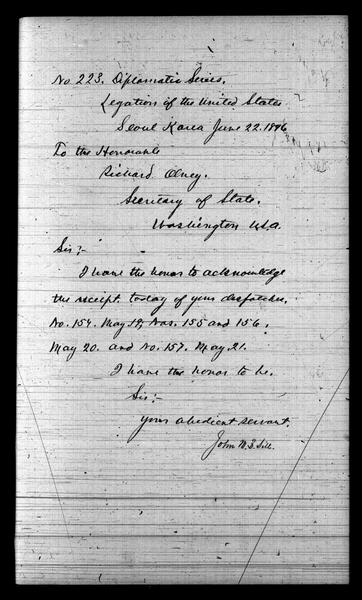 No. 223. Diplomatic Series.
Legation of the United States
Seoul Korea June 22. 1896
To the Honorable
Richard Olney.
Secretary of State.
Washington U.S.A.
Sir:-
I have the honor to acknowledge
the receipt today of your despatches.
No. 154. May 19, Nos. 155 and 156.
May 20. and No. 157. May 21.
I have the honor to be.
Sir:-
your obedient servant.
John M. B. Sill.